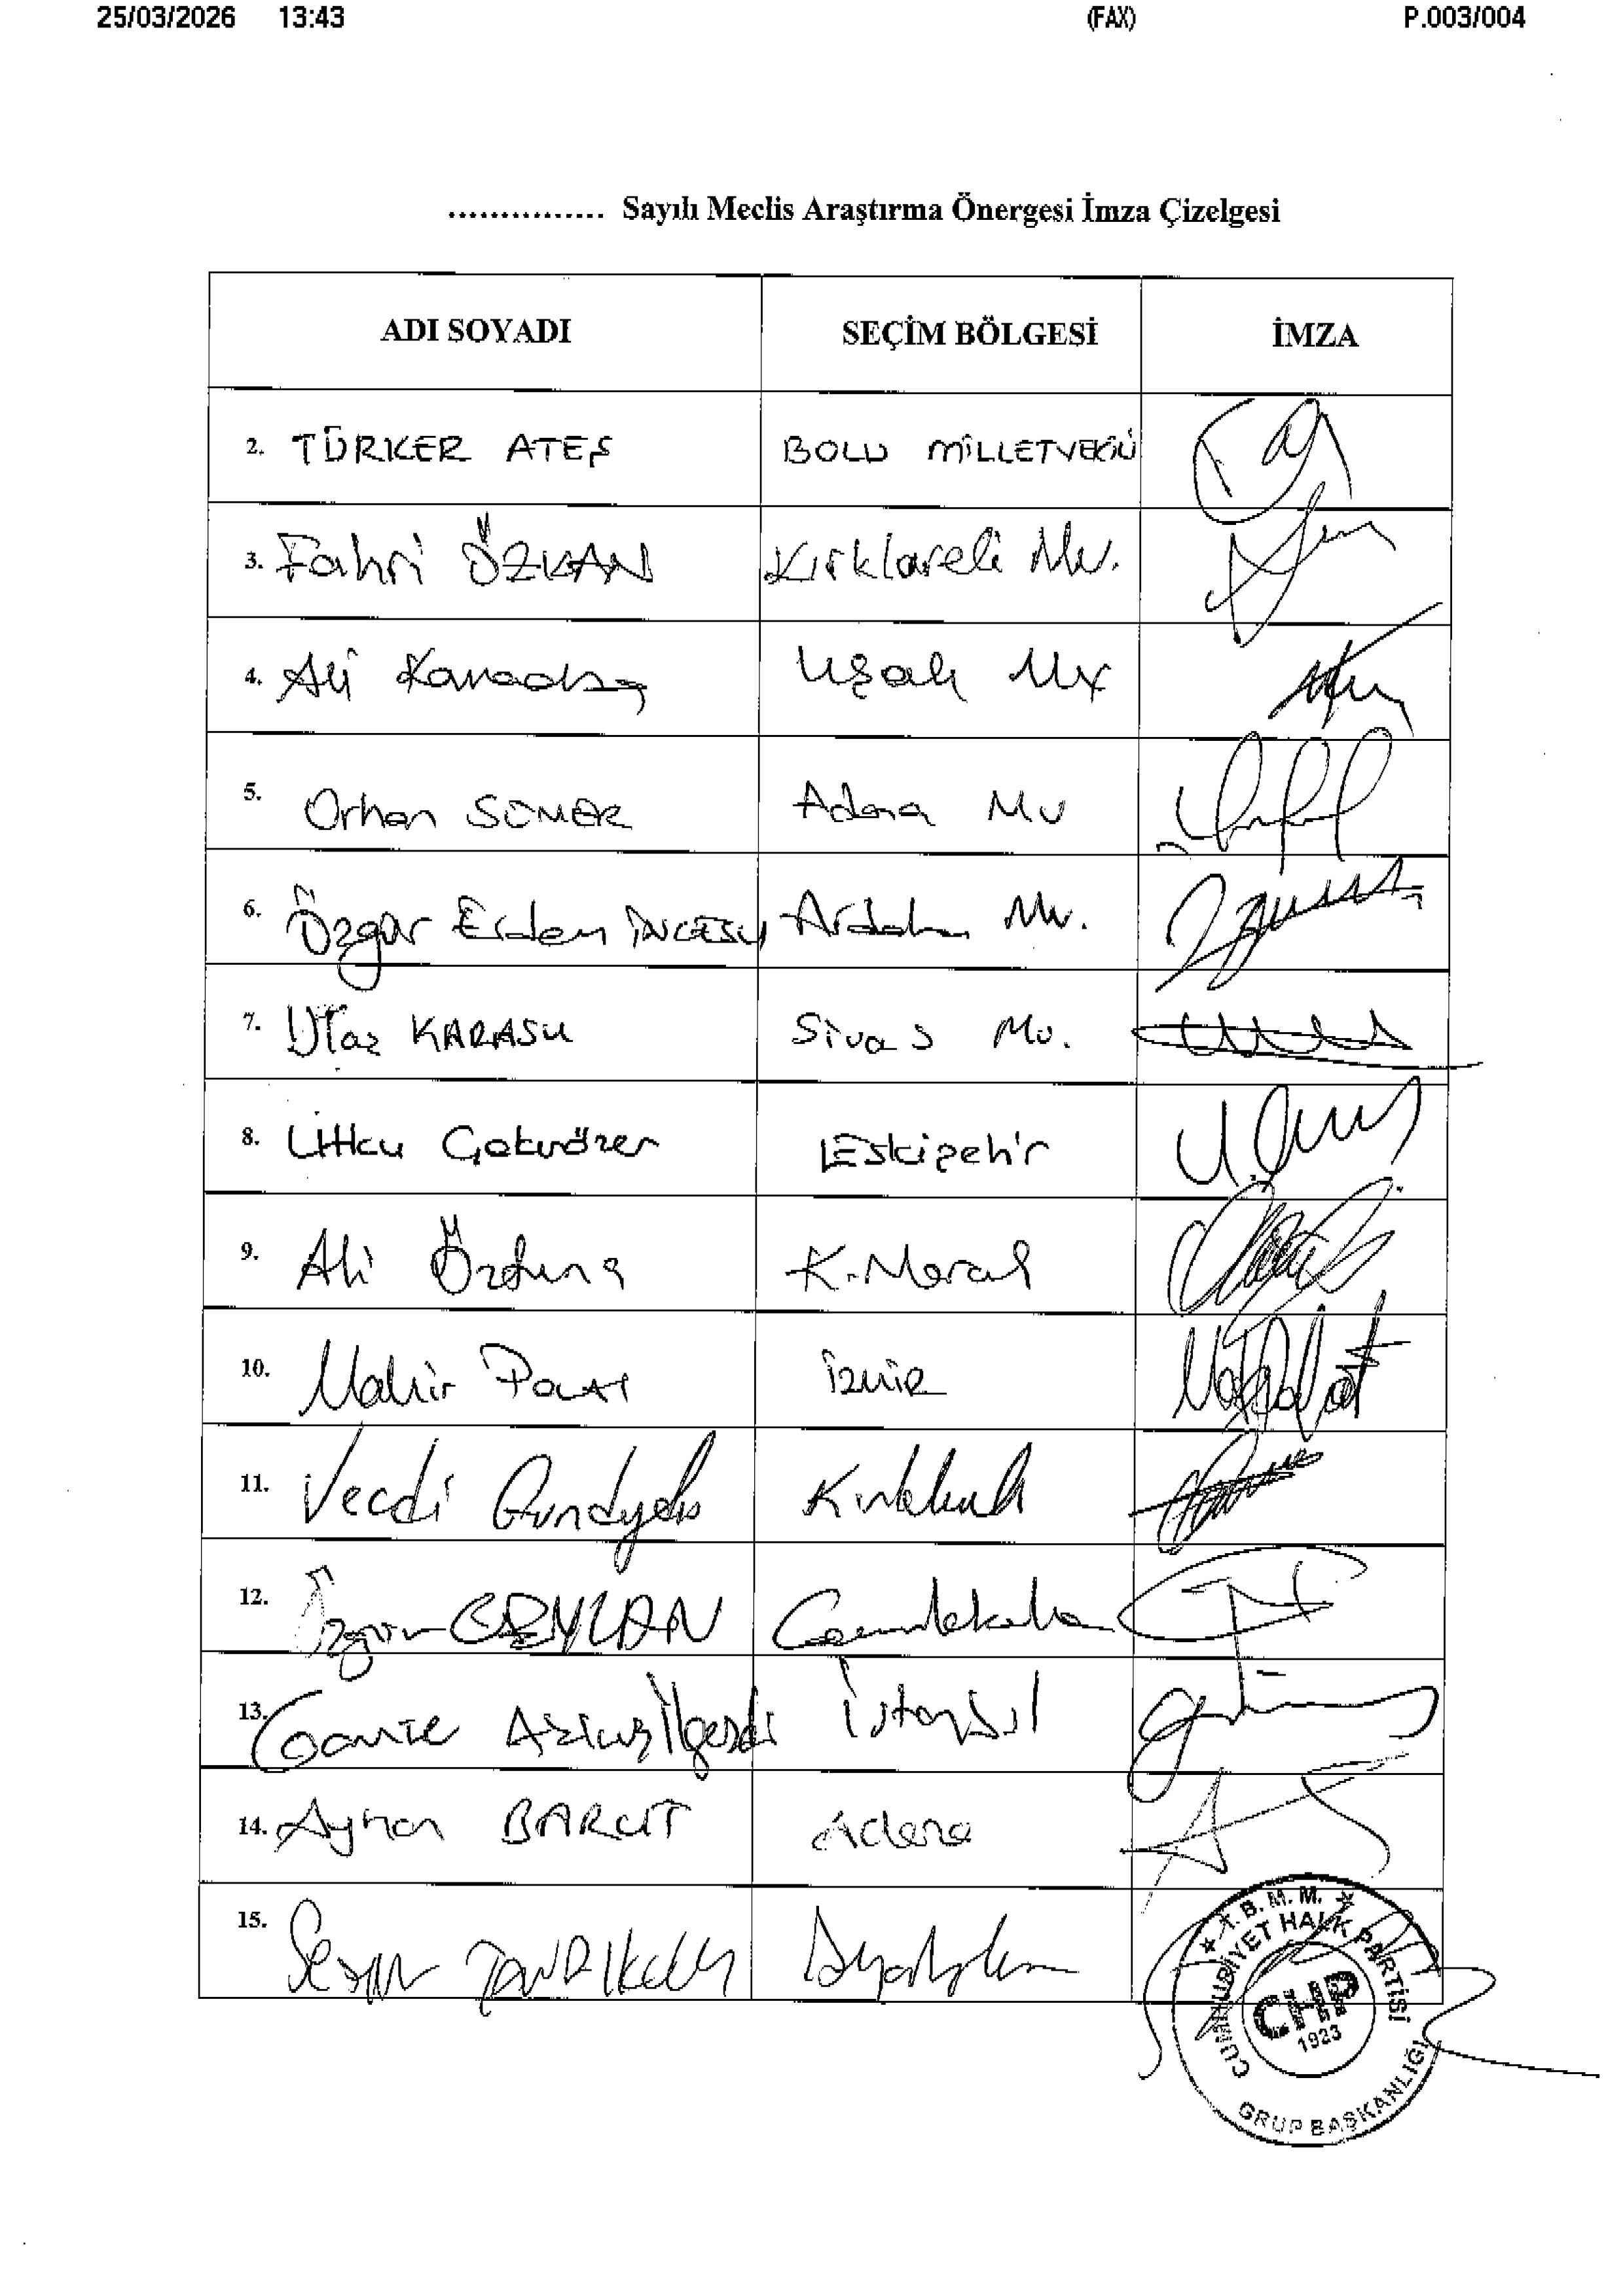 25/03/2026 13:43 (FAX) P.003/004
............... Sayılı Meclis Araştırma Önergesi İmza Çizelgesi
ADI SOYADI SEÇİM BÖLGESİ İMZA
2. TÜRKER ATEŞ BOLU MİLLETVEKİLİ
3. Fahri ÖZKAN Kırklareli Mv.
4. Ali Karaoba Uşak Mv
5. Orhan SÜMER Adana Mv
6. Özgür Erdem İNCESU Ardahan Mv.
7. Ulaş KARASU Sivas Mv.
8. Utku Çakırözer Eskişehir
9. Ali Öztunç K.Maraş
10. Mahir POLAT İzmir
11. Vecdi Gündoğdu Kırklareli
12. Özgür CEYLAN Çanakkale
13. Gamze Akkuş İlgezdi İstanbul
14. Ayhan BARUT Adana
15. Sezgin TANRIKULU Diyarbakır
T.B.M.M.
CUMHURİYET HALK PARTİSİ
CHP
1923
GRUP BAŞKANLIĞI